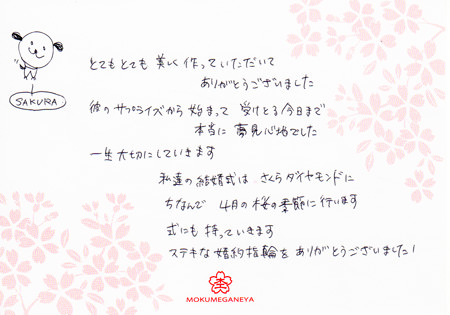 SAKURA
とてもとても 美しく 作っていただいて
ありがとうございました
彼の サプライズから 始まって 受けとる 今日まで
本当に 夢見心地でした
一生 大切にしていきます
私達の 結婚式は さくらダイヤモンドに
ちなんで 4月の 桜の 季節に 行います
式にも 持っていきます
ステキな 婚約指輪を ありがとうございました!
MOKUMEGANEYA